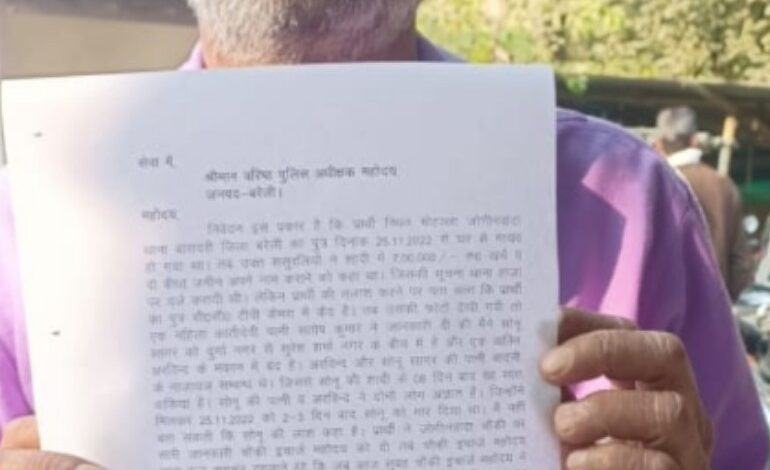 सेवा में,
श्रीमान वरिष्ठ पुलिस अधीक्षक महोदय
जनपद-बरेली।
महोदय,
निवेदन इस प्रकार है कि प्रार्थी स्थित मोहल्ला जोगीनवादा
थाना बारादरी जिला बरेली का पुत्र दिनांक 25.11.2022 से घर से गायब
हो गया था। तब उक्त ससुरालियो ने शादी में 7,00,000/- रू0 खर्च व
दो बीघा जमीन अपने नाम कराने को कहा था। जिसकी सूचना थाना हाजा
पर दर्ज करायी थी। लेकिन प्रार्थी की तलाश करने पर पता चला कि प्रार्थी
का पुत्र सी0सी0 टीवी कैमरा में कैद है। जब उसकी फोटो देखी गयी तो
एक महिला कांतीदेवी पत्नी संतोष कुमार ने जानकारी दी की मैंने सोनू
सागर को दुर्गा नगर से सुरेश शर्मा नगर के बीच में है और एक व्यक्ति
अरविन्द के मकान में बंद है। अरविन्द और सोनू सागर की पत्नी
के नाजायज सम्बन्ध थे। जिससे सोनू की शादी के 08 दिन बाद
है। सोनू की पत्नी व अरविन्द ये दोनो लोग अज्ञात है। जिन्होंने
मिलकर 25.11.2022 को 2-3 दिन बाद सोनू को मार दिया था। मैं नहीं
बता सकती कि सोनू की लाश कहा है। प्रार्थी ने जोगीनवादा चौकी पर
सारी जानकारी चौकी इंचार्ज महोदय को दी तब चौकी इंचार्ज महोदय
रहे कि जब आज सुबह चौकी इंचार्ज महोदय ने